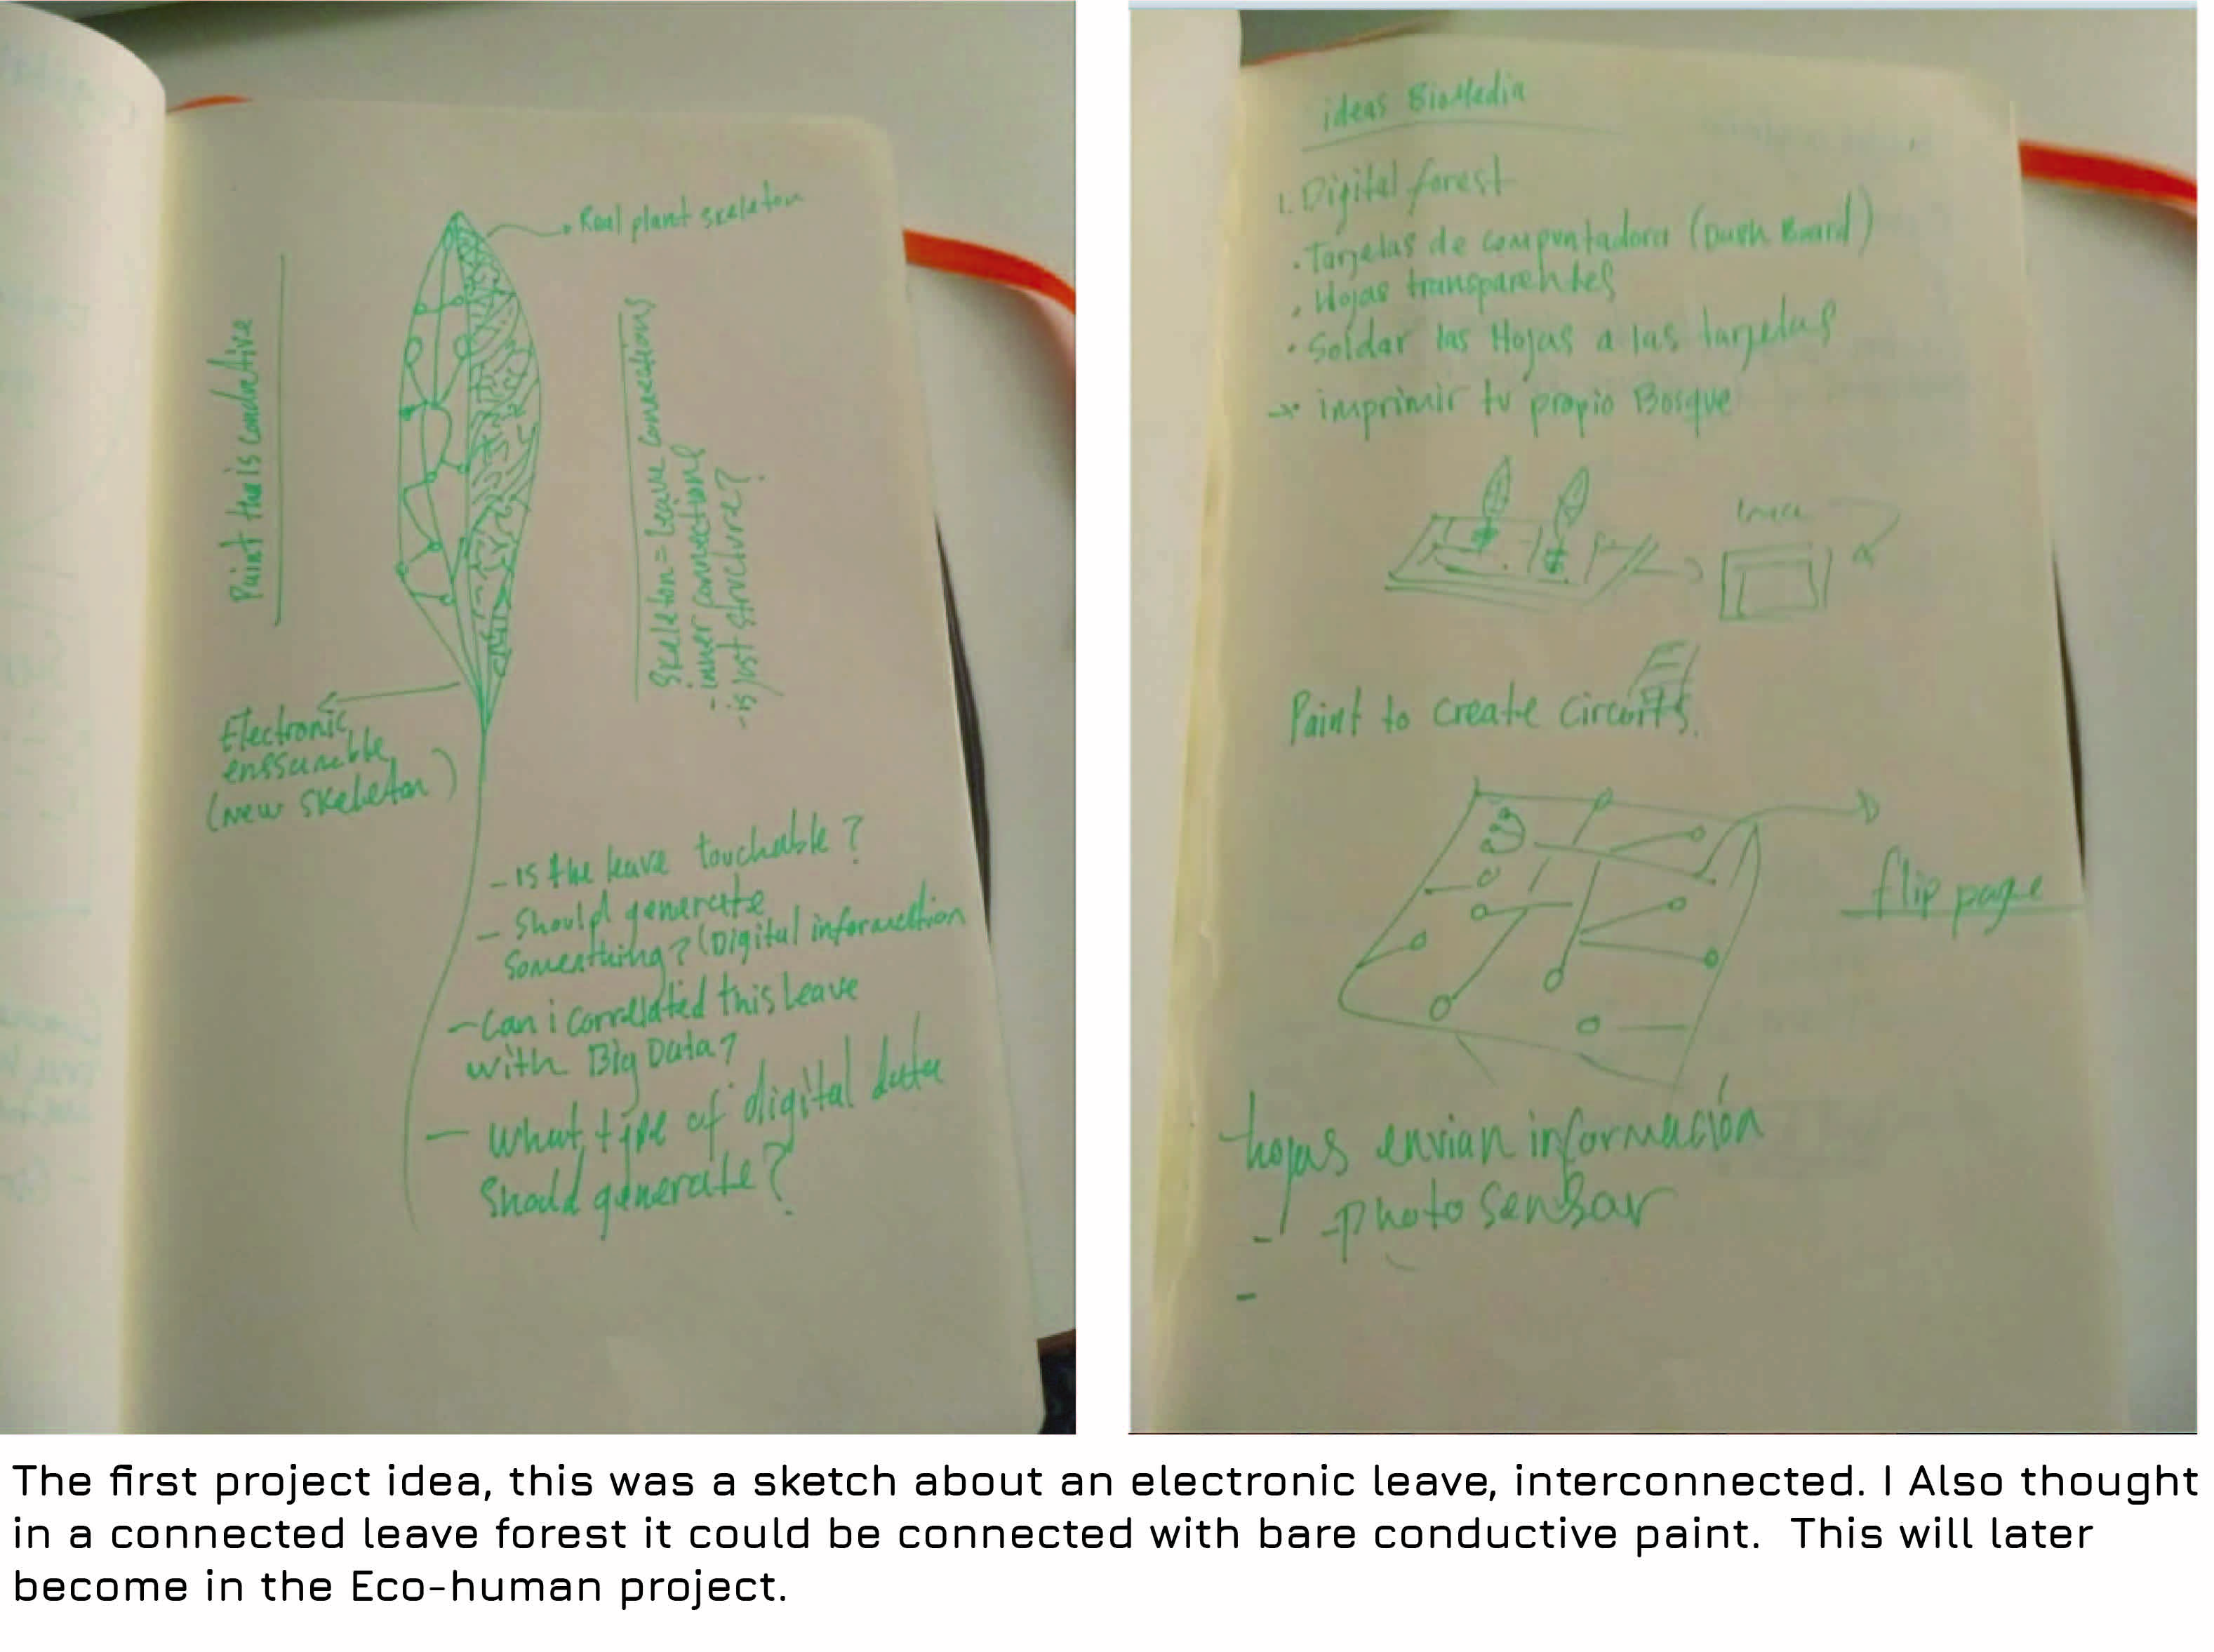 Real plant skeleton
Paint the is conductive
Skeleton = leave connections
- inner connections
- is just structure?
Electronic
enssamble
(new skeleton)
- is the leave touchable?
- Should generate
something? (Digital information
- Can i correlated this leave
with Big Data?
- What type of digital data
Should generate?
ideas BioMedia
1. Digital forest
· Tarjetas de computadora (Dush Board)
· Hojas transparentes
· Soldar las Hojas a las tarjetas
→ imprimir tu propio Bosque
Paint to create circuits.
flip page
hojas envian información
- photo sensor
The first project idea, this was a sketch about an electronic leave, interconnected. I Also thought
in a connected leave forest it could be connected with bare conductive paint. This will later
become in the Eco-human project.